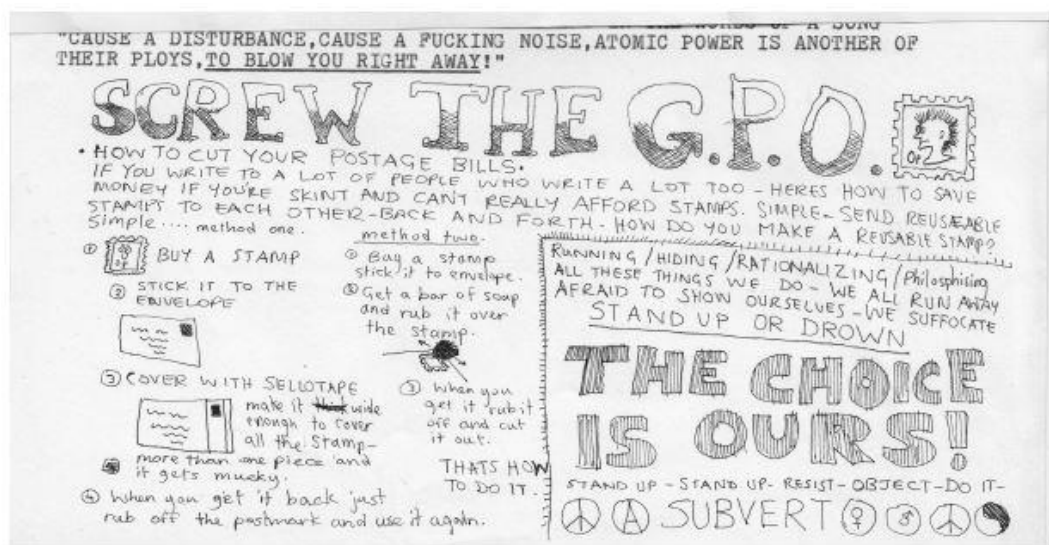 "CAUSE A DISTURBANCE,CAUSE A FUCKING NOISE,ATOMIC POWER IS ANOTHER OF
THEIR PLOYS,TO BLOW YOU RIGHT AWAY!"
SCREW THE G.P.O.
• HOW TO CUT YOUR POSTAGE BILLS.
IF YOU WRITE TO A LOT OF PEOPLE WHO WRITE A LOT TOO - HERES HOW TO SAVE
MONEY IF YOU'RE SKINT AND CAN'T REALLY AFFORD STAMPS. SIMPLE - SEND REUSEABLE
STAMPS TO EACH OTHER - BACK AND FORTH - HOW DO YOU MAKE A REUSABLE STAMP?
Simple .... method one.
① BUY A STAMP
② STICK IT TO THE
ENVELOPE
③ COVER WITH SELLOTAPE
make it wide
enough to cover
all the stamp -
more than one piece and
it gets mucky.
④ When you get it back just
rub off the postmark and use it again.
method two.
① Buy a stamp
stick it to envelope.
② Get a bar of soap
and rub it over
the stamp.
③ When you
get it rub it
off and cut
it out.
THATS HOW
TO DO IT.
RUNNING / HIDING / RATIONALIZING / Philosphising
ALL THESE THINGS WE DO - WE ALL RUN AWAY
AFRAID TO SHOW OURSELVES - WE SUFFOCATE
STAND UP OR DROWN
THE CHOICE
IS OURS!
STAND UP - STAND UP - RESIST - OBJECT - DO IT -
SUBVERT